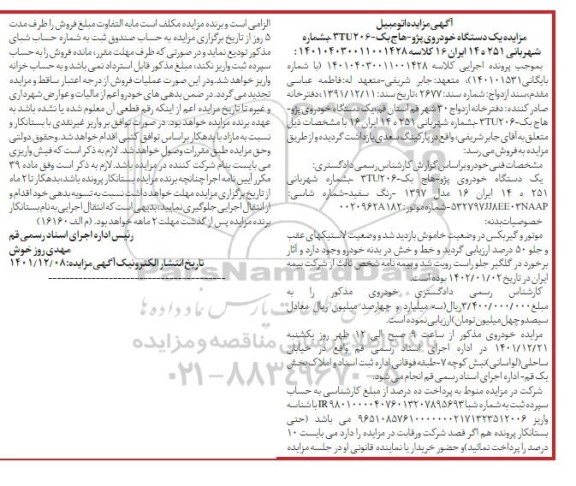 آگهی مزایده اتومبیل
مزایده یک دستگاه خودروی پژو-هاچ بک-۲۰۶ ۳TU بشماره
شهربانی ۲۵۱ ه ۱۴ ایران ۱۶ کلاسه ۱۴۰۱۰۴۰۳۰۰۱۱۰۰۱۴۲۸ :
بموجب پرونده اجرایی کلاسه ۱۴۰۱۰۴۰۳۰۰۱۱۰۰۱۴۲۸ (با شماره
بایگانی ۱۴۰۱۰۱۵۳۱)، متعهد: جابر شریفی-متعهد له: فاطمه عباسی
مقدم،سند ازدواج: شماره سند: ۲۶۷۷، تاریخ سند: ۱۳۹۱/۱۲/۱۱، دفترخانه
صادر کننده: دفترخانه ازدواج ۳۰ شهر قم استان قم، یک دستگاه خودروی پژو-
هاچ بک-۲۰۶ ۳TU بشماره شهربانی ۲۵۱ ه ۱۴ ایران ۱۶ با مشخصات ذیل
متعلق به آقای جابر شریفی، واقع در پارکینگ سعدی بازداشت گردیده و از طریق
مزایده به فروش می رسد:
مشخصات فنی خودرو بر اساس گزارش کارشناس رسمی دادگستری:
یک دستگاه خودروی پژو-هاچ بک-۲۰۶ ۳TU بشماره شهربانی
۲۵۱ ه ۱۴ ایران ۱۶ مدل ۱۳۹۷ -رنگ سفید-شماره شاسی:
۵۳۲۷۹۷JJAEE۰۳NAAP-شماره موتور: ۰۰۲۰۹۶۲۸۱۸۲
خصوصیات بدنه:
موتور و گیربکس در وضعیت خاموش بازدید شد و وضعیت لاستیکهای عقب
و جلو ۵۰ درصد ارزیابی گردید و خط و خش در بدنه خودرو وجود دارد و آثار
برخورد در گلگیر جلو راست رویت شد و بیمه نامه شخص ثالث از شرکت بیمه
ایران در تاریخ ۱۴۰۲/۰۱/۰۲ بوده است.
کارشناس رسمی دادگستری ، خودروی مذکور را به
مبلغ ۳/۴۰۰/۰۰۰/۰۰۰ ریال (سه میلیارد و چهارصد میلیون ریال معادل
سیصدو چهل میلیون تومان) ارزیابی نموده است.
مزایده خودروی مذکور از ساعت ۹ صبح الی ۱۲ ظهر روز یکشنبه
۱۴۰۱/۱۲/۲۱ در اداره اجرای اسناد رسمی قم واقع در خیابان
ساحلی (لواسانی)، نبش کوچه ۷-طبقه فوقانی اداره ثبت اسناد و املاک بخش
یک قم- اداره اجرای اسناد رسمی قم انجام می شود.
شرکت در مزایده منوط به پرداخت ده درصد از مبلغ کارشناسی به حساب
سپرده ثبت به شماره شبا IR۹۸۰۱۰۰۰۰۴۰۷۶۰۱۳۲۰۷۸۹۵۶۹۳ با شناسه
واریز ۹۶۵۱۰۸۵۷۶۱۰۰۰۰۰۰۲۱۷۱۳۲۳۵۱۲۰۰۶ می باشد (حتی
بستانکار پرونده هم اگر قصد شرکت و رقابت در مزایده را دارد می بایست ۱۰
درصد را پرداخت نمایند) و حضور خریدار یا نماینده قانونی او در جلسه مزایده
الزامی است و برنده مزایده مکلف است مابه التفاوت مبلغ فروش را ظرف مدت
۵ روز از تاریخ برگزاری مزایده به حساب صندوق ثبت به شماره حساب شبای
مذکور تودیع نماید و در صورتی که ظرف مهلت مقرر، مانده فروش را به حساب
سپرده ثبت واریز نکند، مبلغ مذکور قابل استرداد نمی باشد و به حساب خزانه
واریز خواهد شد. و در این صورت عملیات فروش از درجه اعتبار ساقط و مزایده
تجدید می گردد. در ضمن بدهی های خودرو اعم از مالیات و عوارض شهرداری
و غیره تا تاریخ مزایده اعم از اینکه رقم قطعی آن معلوم شده یا نشده باشد به
عهده برنده مزایده خواهد بود. در صورت توافق بر واریز غیرنقدی با بستانکار و
نسبت به مازاد با بدهکار بر اساس توافق کتبی اقدام خواهد شد. و حقوق دولتی
وحق مزایده طبق مقررات وصول خواهد شد. لازم به ذکر است که فیش واریزی
می بایست بنام شرکت کننده در مزایده باشد. لازم به ذکر است وفق ماده ۳۹
مکرر آیین نامه اجرا چنانچه برنده مزایده بستانکار پرونده باشد بدهکار تا ۲ ماه
از تاریخ برگزاری مزایده مهلت خواهد داشت نسبت به تسویه بدهی خود اقدام و
از انتقال اجرایی جلوگیری نماید، بدیهی است که انتقال اجرایی به نام بستانکار
برنده مزایده پس از گذشت مهلت ۲ ماهه خواهد بود. (م الف ۱۶۱۶۰)
رئیس اداره اجرای اسناد رسمی قم
مهدی روز خوش
تاریخ انتشار الکترونیک آگهی مزایده: ۱۴۰۱/۱۲/۰۸
ParsNamadData
۰۲۱-۸۸۳۴۹۶۷۰-۵